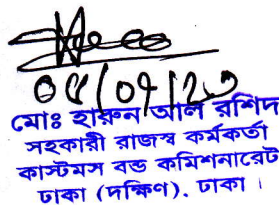 ০৫/০৭/২৩
মোঃ হারুন আল রশিদ
সহকারী রাজস্ব কর্মকর্তা
কাস্টমস বন্ড কমিশনারেট
ঢাকা (দক্ষিণ), ঢাকা।